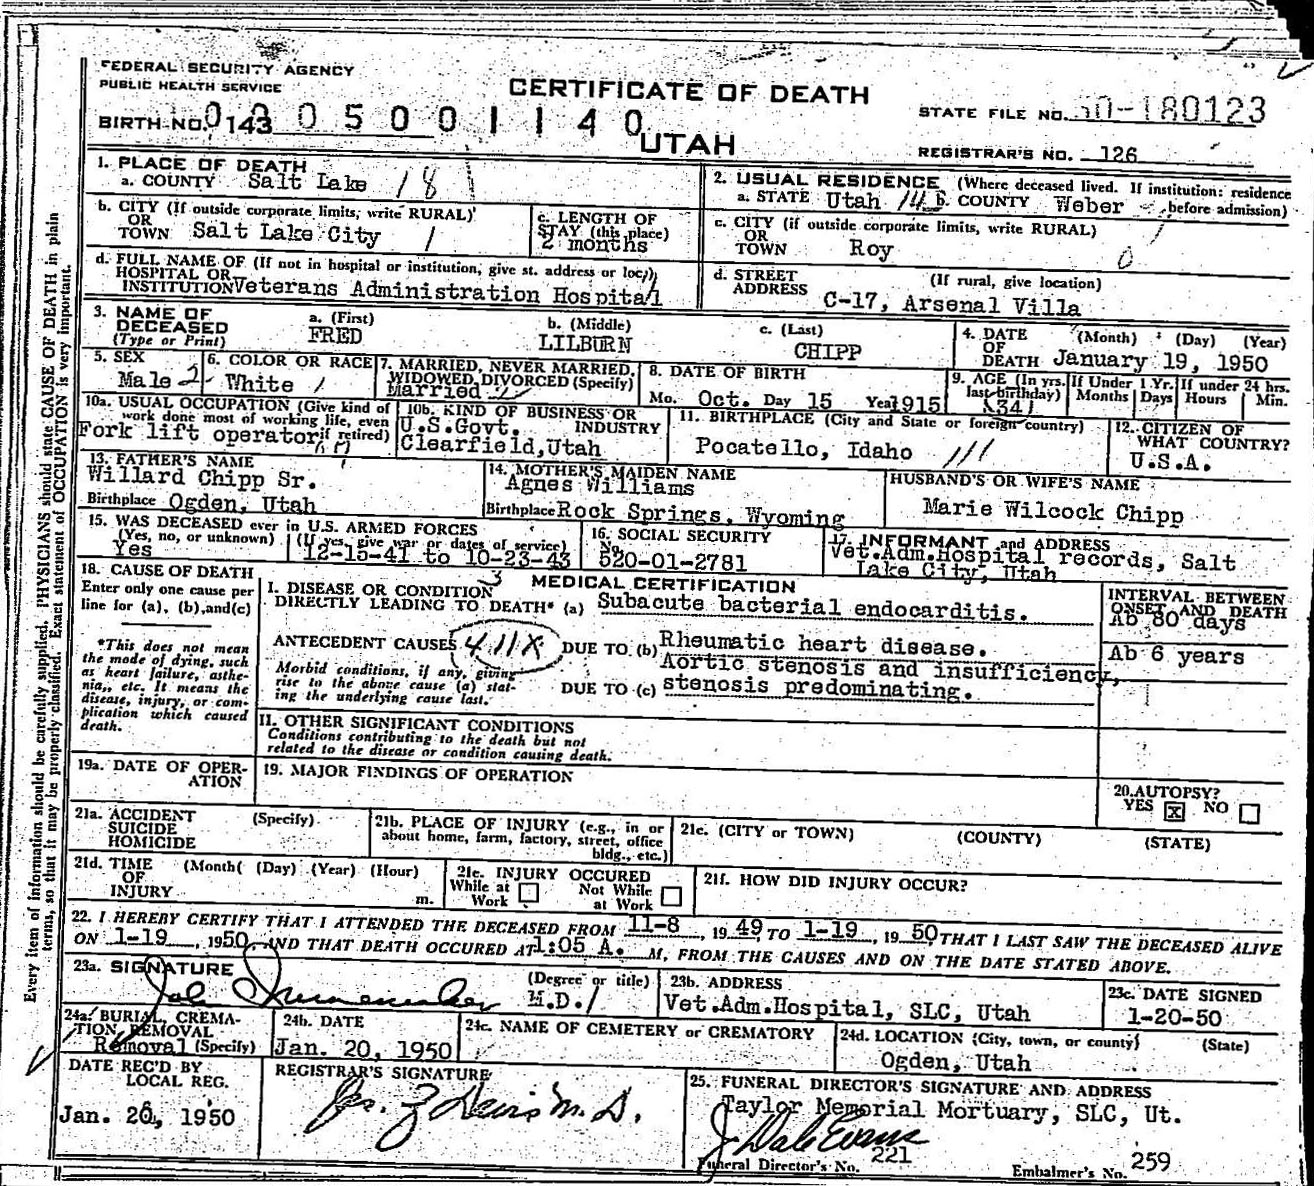 FEDERAL SECURITY AGENCY
PUBLIC HEALTH SERVICE
CERTIFICATE OF DEATH
UTAH
STATE FILE NO. 50-180123
BIRTH NO. 0 143 0 0 5 0 0 1 1 4 0
REGISTRAR'S NO. 126
1. PLACE OF DEATH
a. COUNTY Salt Lake 18
b. CITY (If outside corporate limits, write RURAL)
OR
TOWN Salt Lake City 1
c. LENGTH OF
STAY (this place)
2 months
d. FULL NAME OF (If not in hospital or institution, give st. address or loc.)
HOSPITAL OR
INSTITUTION Veterans Administration Hospital
2. USUAL RESIDENCE (Where deceased lived. If institution: residence
before admission)
a. STATE Utah b. COUNTY Weber
c. CITY (if outside corporate limits, write RURAL)
OR
TOWN Roy 0
d. STREET (If rural, give location)
ADDRESS C-17, Arsenal Villa
3. NAME OF
DECEASED
(Type or Print)
a. (First)
FRED
b. (Middle)
LILBURN
c. (Last)
CHIPP
4. DATE (Month) (Day) (Year)
OF
DEATH January 19, 1950
5. SEX
Male 2
6. COLOR OR RACE
White 1
7. MARRIED, NEVER MARRIED,
WIDOWED, DIVORCED (Specify)
Married 2
8. DATE OF BIRTH
Mo. Oct. Day 15 Year 1915
9. AGE (In yrs.
last birthday)
34
If Under 1 Yr.
Months Days
If under 24 hrs.
Hours Min.
10a. USUAL OCCUPATION (Give kind of
work done most of working life, even
if retired)
Fork lift operator
10b. KIND OF BUSINESS OR
INDUSTRY
U.S.Govt.
Clearfield, Utah
11. BIRTHPLACE (City and State or foreign country)
Pocatello, Idaho
12. CITIZEN OF
WHAT COUNTRY?
U.S.A.
13. FATHER'S NAME
Willard Chipp Sr.
Birthplace Ogden, Utah
14. MOTHER'S MAIDEN NAME
Agnes Williams
Birthplace Rock Springs, Wyoming
HUSBAND'S OR WIFE'S NAME
Marie Wilcock Chipp
15. WAS DECEASED ever in U.S. ARMED FORCES
(Yes, no, or unknown) (If yes, give war or dates of service)
Yes 12-15-41 to 10-23-43
3
16. SOCIAL SECURITY
No.
520-01-2781
17. INFORMANT and ADDRESS
Vet.Adm.Hospital records, Salt
Lake City, Utah
18. CAUSE OF DEATH
Enter only one cause per
line for (a), (b), and (c)
*This does not mean
the mode of dying, such
as heart failure, asthe-
nia, etc. It means the
disease, injury, or com-
plication which caused
death.
MEDICAL CERTIFICATION
I. DISEASE OR CONDITION
DIRECTLY LEADING TO DEATH* (a) Subacute bacterial endocarditis.
ANTECEDENT CAUSES 411X DUE TO (b) Rheumatic heart disease.
Aortic stenosis and insufficiency,
Morbid conditions, if any, giving
rise to the above cause (a) stat-
ing the underlying cause last.
DUE TO (c) stenosis predominating.
INTERVAL BETWEEN
ONSET AND DEATH
Ab 80 days
Ab 6 years
II. OTHER SIGNIFICANT CONDITIONS
Conditions contributing to the death but not
related to the disease or condition causing death.
19a. DATE OF OPER-
ATION
19. MAJOR FINDINGS OF OPERATION
20. AUTOPSY?
YES X NO
21a. ACCIDENT (Specify)
SUICIDE
HOMICIDE
21b. PLACE OF INJURY (e.g., in or
about home, farm, factory, street, office
bldg., etc.)
21c. (CITY or TOWN) (COUNTY) (STATE)
21d. TIME (Month) (Day) (Year) (Hour)
OF
INJURY m.
21e. INJURY OCCURED
While at Work Not While at Work
21f. HOW DID INJURY OCCUR?
22. I HEREBY CERTIFY THAT I ATTENDED THE DECEASED FROM 11-8, 1949, TO 1-19, 1950, THAT I LAST SAW THE DECEASED ALIVE
ON 1-19, 1950, AND THAT DEATH OCCURED AT 1:05 A. M, FROM THE CAUSES AND ON THE DATE STATED ABOVE.
23a. SIGNATURE (Degree or title)
John M.D.
23b. ADDRESS
Vet.Adm.Hospital, SLC, Utah
23c. DATE SIGNED
1-20-50
24a. BURIAL, CREMA-
TION, REMOVAL
Removal (Specify)
24b. DATE
Jan. 20, 1950
24c. NAME OF CEMETERY or CREMATORY
24d. LOCATION (City, town, or county) (State)
Ogden, Utah
DATE REC'D BY
LOCAL REG.
Jan. 20, 1950
REGISTRAR'S SIGNATURE
Davis M.D.
25. FUNERAL DIRECTOR'S SIGNATURE AND ADDRESS
Taylor Memorial Mortuary, SLC, Ut.
J. Dale Evans
Funeral Director's No. 221
Embalmer's No. 259
Every item of information should be carefully supplied. PHYSICIANS should state CAUSE OF DEATH in plain
terms, so that it may be properly classified. Exact statement of OCCUPATION is very important.